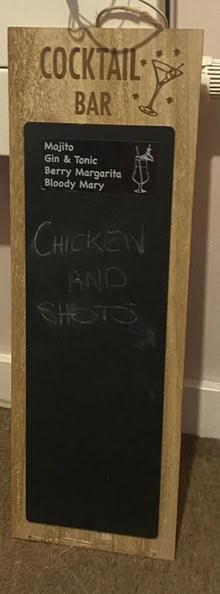 COCKTAIL
BAR
Mojito
Gin & Tonic
Berry Margarita
Bloody Mary
CHICKEN
AND
SHOTS